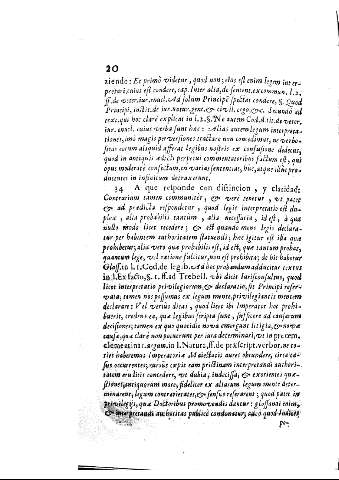 20
ziendo: Et primò videtur, quod non; eius est enim legem inter-
pretari, cuius est condere, cap. Inter alia, de sentent. excommun. l. 2.
ff. de veter. iur. enucl. Ad solum Principem spectat condere, §. Quod
Principi, instit. de iur. natur. gent. & civil. ergo, &c. Secundò ad
text. qui hoc clarè explicat in l. 2. §. Ne autem Cod. tit. de veter.
iur. enucl. cuius verba sunt hæc: Alias autem legum interpreta-
tiones, imò magis perversiones iactare non concedimus, ne verbo-
sitas eorum aliquid afferat legibus nostris ex confusione dedecus,
quod in antiquis edicti perpetui commentatoribus factum est, qui
opus moderatè confectum, in varias sententias, huc, atque illuc pro-
ducentes in infinitum detraxerunt.
34 A que respondo con distincion, y claridad:
Contrarium tamen communiter, & verè tenetur, vt pacet
& ad prædicta respondetur, quod legis interpretatio est du-
plex, alia probabilis tantùm, alia necessaria, id est, à qua
nullo modo licet recedere; & est quando mens legis declara-
tur per habentem authoritatem statuendi, hæc igitur est illa quæ
prohibetur; alia verò quæ probabilis est, id est, quæ tantùm probat,
quantum lege, vel ratione fulcitur, non est prohibita; de his habetur
Gloss. in l. 1. Cod. de legib. Ad hoc probandum adducitur textus
in l. Ex facto, §. 1. ff. ad Trebell. vbi dicit Iurisconsultus, quod
licet interpretatio privilegiorum, & declaratio, sit Principi reser-
vata, tamen nos possumus ex legum mente, privilegiantis mentem
declarare: Vel verius dicas, quod licet Imperator hoc prohi-
buerit, credens ea, quæ legibus scripta sunt, sufficere ad causarum
decisiones; tamen ex quo quotidie nova emergunt litigia, & novæ
causæ, quæ clarè non possunt per iura determinari, vt in proœm.
clementinar. argum. in l. Natura, ff. de præscript. verbor. ne to-
ties haberemus Imperatoriæ Maiestatis aures obtundere, circa ca-
sus occurrentes; rursus cepit eam pristinam interpretandi authori-
tatem eruditis concedere, vt dubia, indecissa, & exorientes quæ-
stiones, antiquorum more, fideliter ex aliarum legum mente deter-
minarent, legum contrarietates, & sensus referarent; quod patet in
privilegijs, quæ Doctoribus promovendis dantur: glossandi enim,
& interpretandi authoritas publicè condonatur; adeò quod Iudices
po-